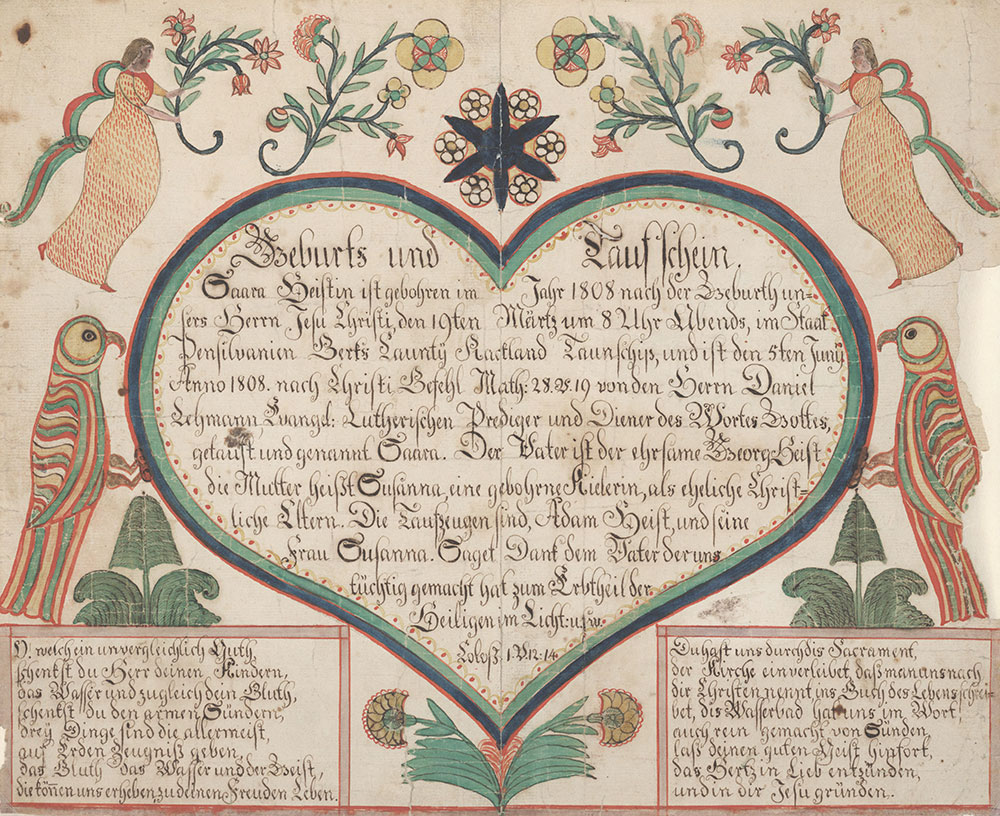 Geburts und Taufschein.
Saara Heistin ist gebohren im Jahr 1808 nach der Geburth un=
sers Herrn Jesu Christi, den 19ten Märtz um 8 Uhr Abends, im Staat
Pensilvanien Berks Caunty Rackland Taunschip, und ist den 5ten Juny
Anno 1808. nach Christi Befehl Math: 28. V. 19 von den Herrn Daniel
Lehmann Evangel: Lutherischen Prediger und Diener des Wortes Gottes,
getauft und genannt Saara. Der Vater ist der ehrsame Georg Heist
die Mutter heißt Susanna, eine gebohrne Kielerin, als eheliche Christ=
liche Eltern. Die Taufzeugen sind, Adam Heist, und seine
Frau Susanna. Saget Dank dem Vater der uns
tüchtig gemacht hat zum Erbtheil der
Heiligen im Licht: usw.
Coloß. 1. V. 12. 14.
O, welch ein unvergleichlich Guth
schenkst du Herr deinen Kindern,
das Wasser und zugleich dein Bluth,
schenkst du den armen Sündern,
drey Dinge sind die allermeist,
auf Erden Zeugniß geben,
das Bluth das Wasser und der Geist,
die können uns erheben, zu deinen Freuden Leben.
Du hast uns durch dis Sacrament,
der Kirche einverleibet, daß man uns nach
dir Christen nennt, ins Buch des Lebens schrei=
bet, dis Wasserbad hat uns im Wort,
auch rein gemacht von Sünden,
laß deinen guten Geist hinfort,
das Hertz in Lieb entzünden,
und in dir Jesu gründen.